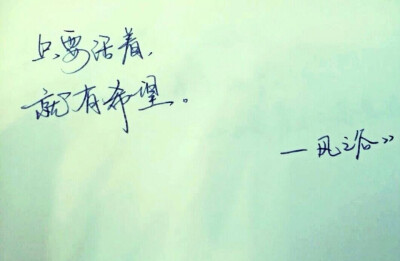 只要活着，
就有希望。
—风之谷》